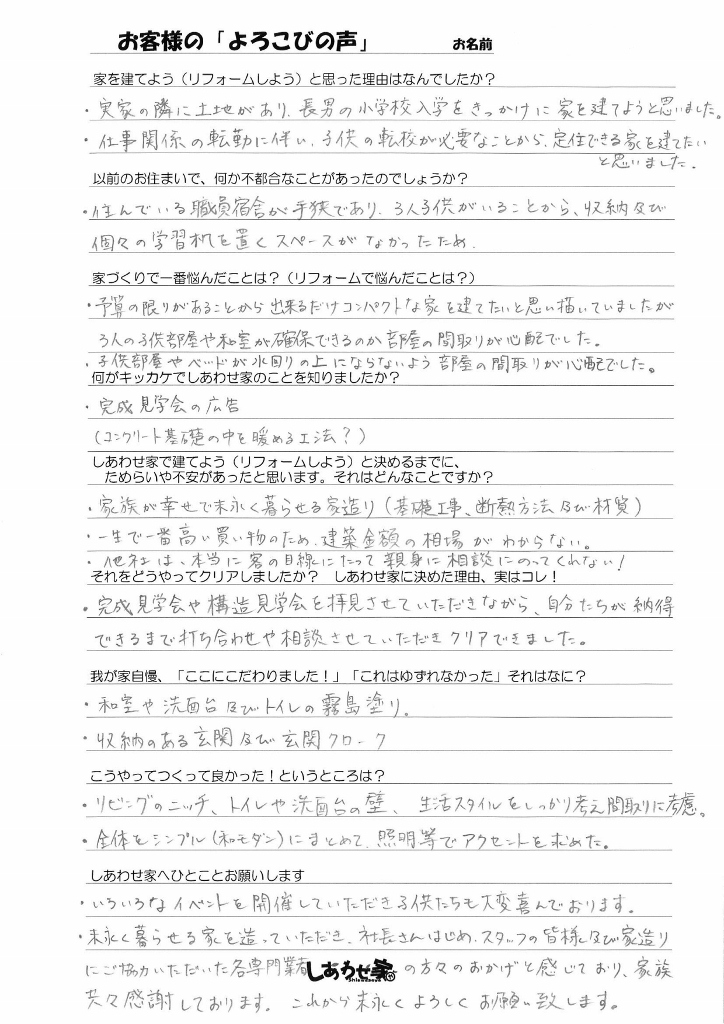 お客様の「よろこびの声」 お名前
家を建てよう（リフォームしよう）と思った理由はなんでしたか？
・実家の隣に土地があり、長男の小学校入学をきっかけに家を建てようと思いました。
・仕事関係の転勤に伴い、子供の転校が必要なことから、定住できる家を建てたい
と思いました。
以前のお住まいで、何か不都合なことがあったのでしょうか？
・住んでいる職員宿舎が手狭であり、3人子供がいることから、収納及び
個々の学習机を置くスペースがなかったため。
家づくりで一番悩んだことは？（リフォームで悩んだことは？）
・予算の限りがあることから出来るだけコンパクトな家を建てたいと思い描いていましたが
3人の子供部屋や和室が確保できるのか部屋の間取りが心配でした。
・子供部屋やベッドが水回りの上にならないよう部屋の間取りが心配でした。
何がキッカケでしあわせ家のことを知りましたか？
・完成見学会の広告
（コンクリート基礎の中を暖める工法？）
しあわせ家で建てよう（リフォームしよう）と決めるまでに、
ためらいや不安があったと思います。それはどんなことですか？
・家族が幸せで末永く暮らせる家造り（基礎工事、断熱方法及び材質）
・一生で一番高い買い物のため、建築金額の相場がわからない。
・他社は、本当に客の目線にたって親身に相談にのってくれない！
それをどうやってクリアしましたか？ しあわせ家に決めた理由、実はコレ！
・完成見学会や構造見学会を拝見させていただきながら、自分たちが納得
できるまで打ち合わせや相談させていただきクリアできました。
我が家自慢、「ここにこだわりました！」「これはゆずれなかった」それはなに？
・和室や洗面台及びトイレの霧島塗り。
・収納のある玄関及び玄関クローク
こうやってつくって良かった！というところは？
・リビングのニッチ、トイレや洗面台の壁、生活スタイルをしっかり考え間取りに考慮。
・全体をシンプル（和モダン）にまとめて、照明等でアクセントを求めた。
しあわせ家へひとことお願いします
・いろいろなイベントを開催していただき子供たちも大変喜んでおります。
・末永く暮らせる家を造っていただき、社長さんはじめ、スタッフの皆様及び家造り
にご協力いただいた各専門業者 しあわせ家 の方々のおかげと感じており、家族
共々感謝しております。これから末永くよろしくお願い致します。